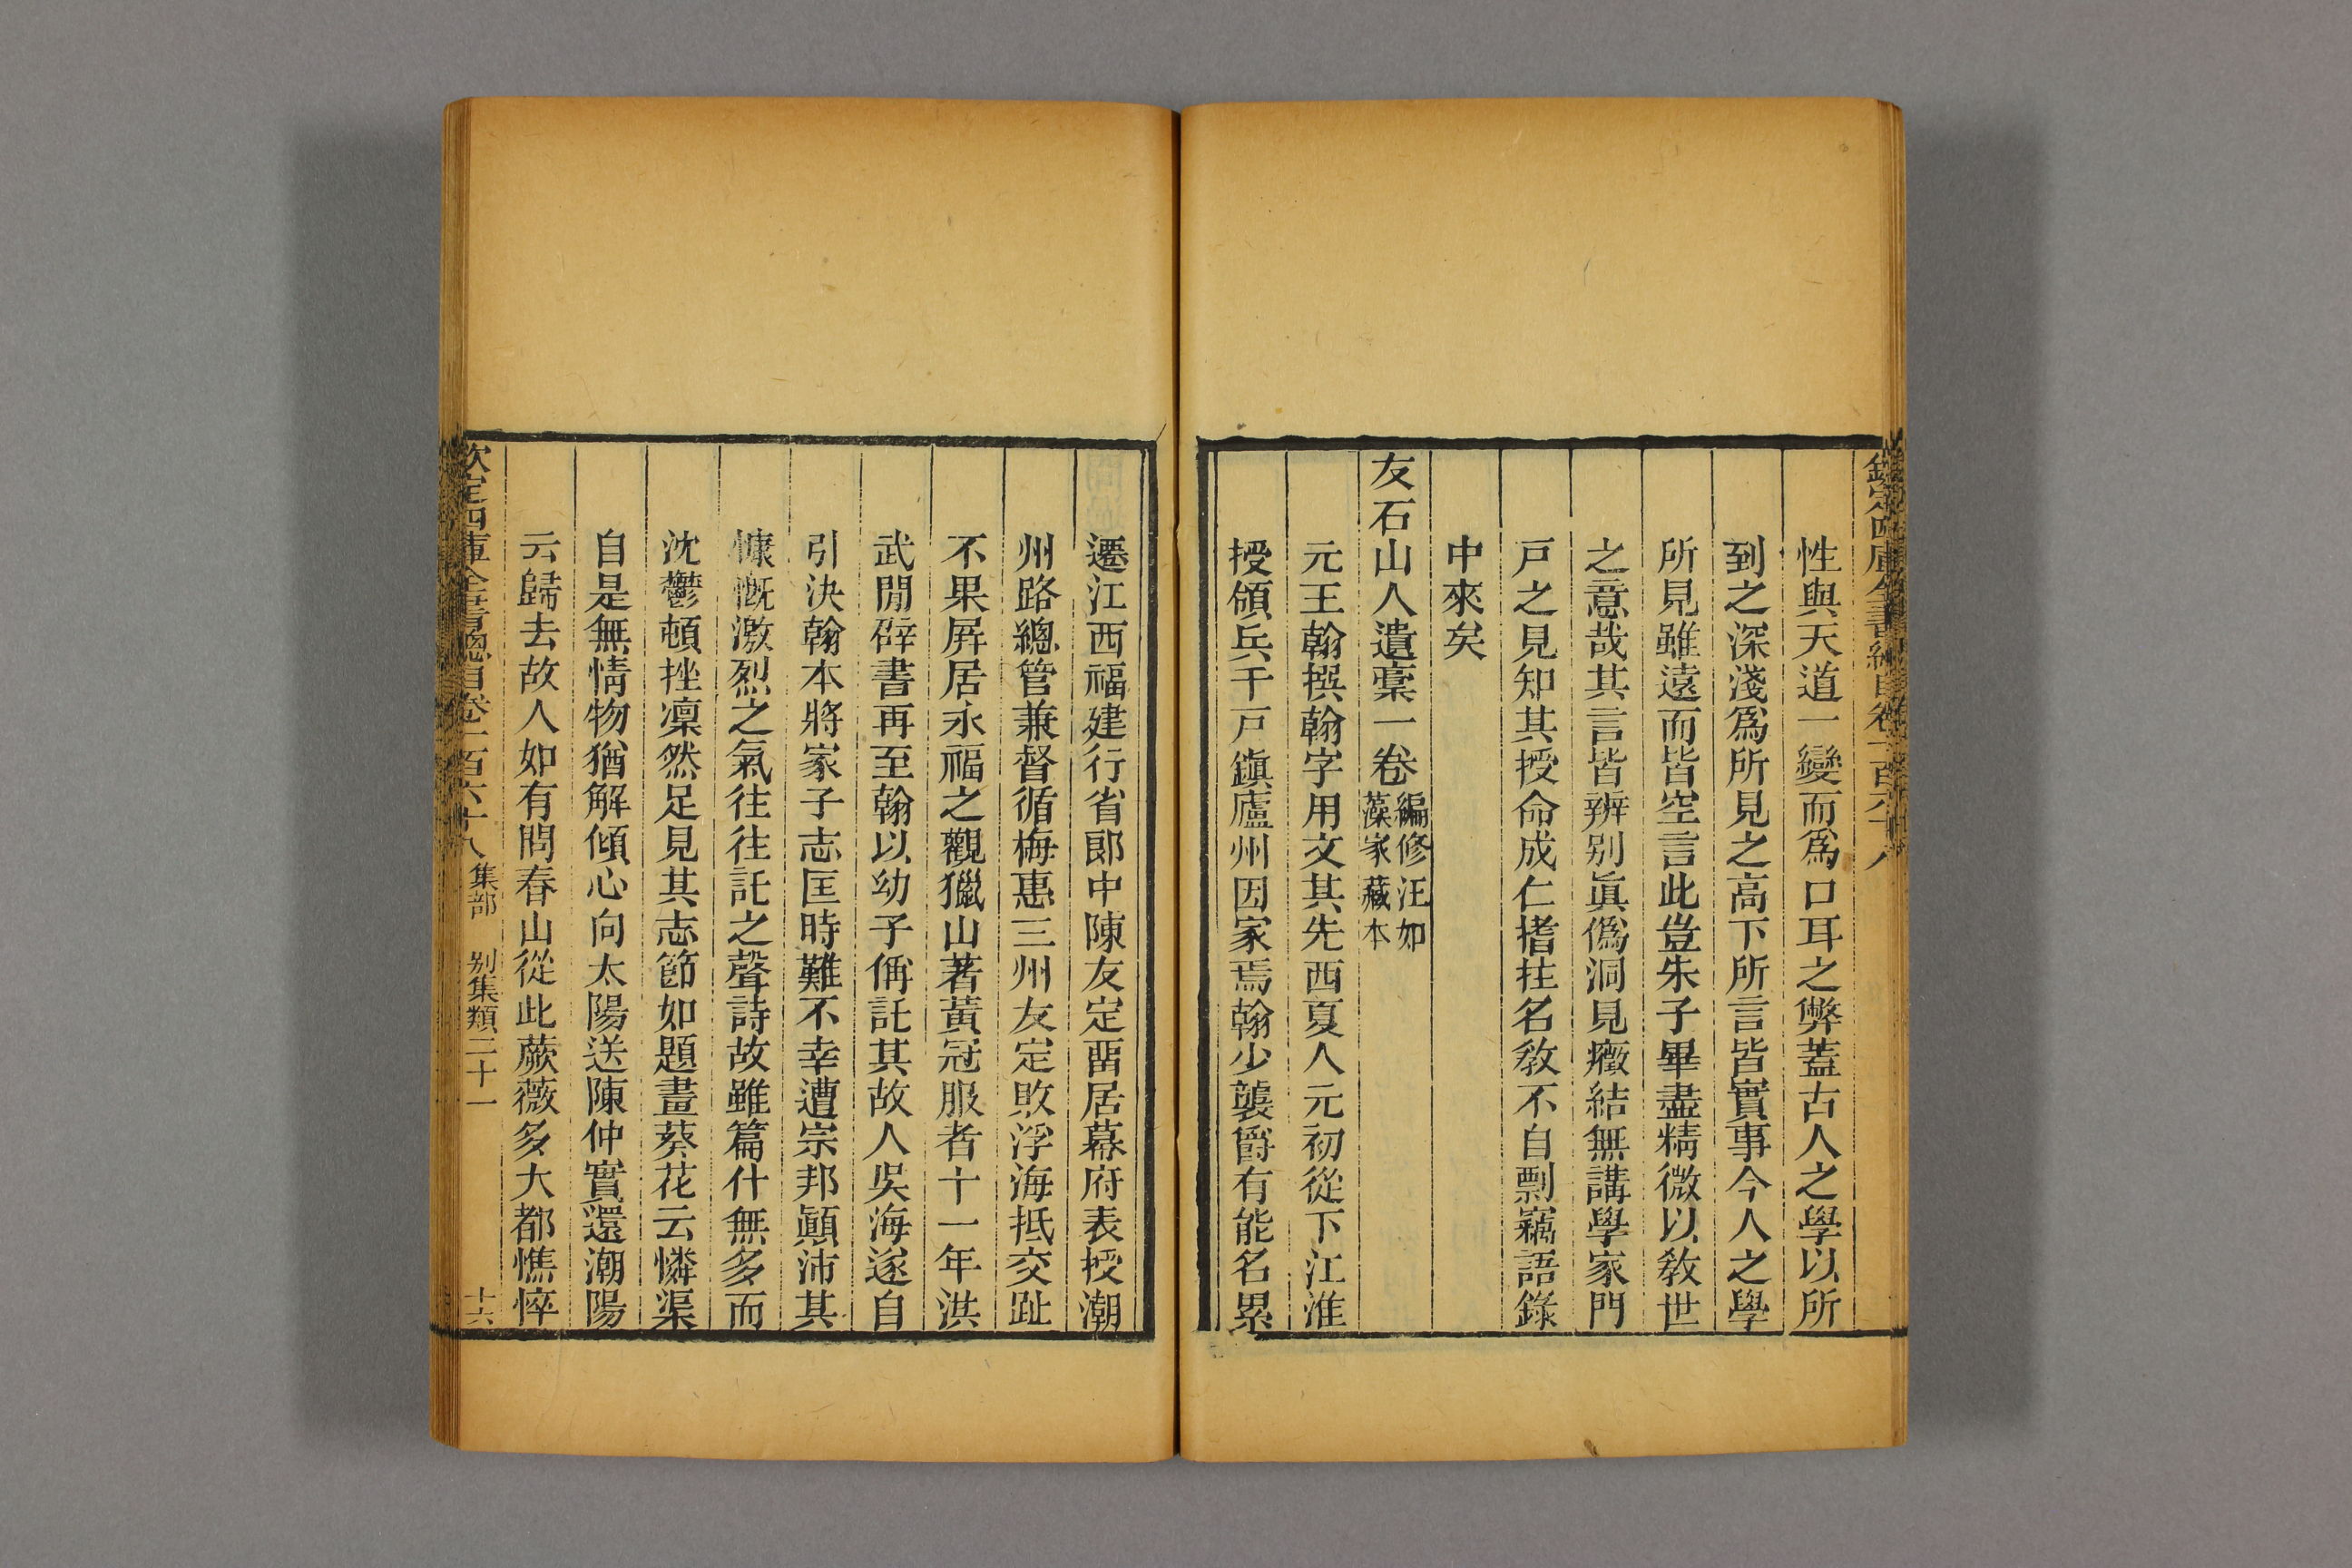 欽定四庫全書總目卷一百六十八
性與天道一變而爲口耳之弊蓋古人之學以所
到之深淺爲所見之高下所言皆實事今人之學
所見雖遠而皆空言此豈朱子畢盡精微以敎世
之意哉其言皆辨别眞僞洞見癥結無講學家門
戸之見知其授命成仁搘拄名敎不自剽竊語錄
中來矣
友石山人遺稾一卷編修汪如藻家藏本
元王翰撰翰字用文其先西夏人元初從下江淮
授領兵千戸鎭廬州因家焉翰少襲爵有能名累
遷江西福建行省郞中陳友定畱居幕府表授潮
州路總管兼督循梅惠三州友定敗浮海抵交趾
不果屛居永福之觀獵山著黃冠服者十一年洪
武閒辟書再至翰以幼子偁託其故人吳海遂自
引決翰本將家子志匡時難不幸遭宗邦顚沛其
慷慨激烈之氣往往託之聲詩故雖篇什無多而
沈鬱頓挫凜然足見其志節如題畫葵花云憐渠
自是無情物猶解傾心向太陽送陳仲實還潮陽
云歸去故人如有問春山從此蕨薇多大都憔悴
欽定四庫全書總目卷一百六十八 集部 别集類二十一 十六